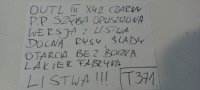 OUTL III X42 CZARNY
P.P SZYBA OPUSZCZONA
WERSJA Z LISTWĄ
DOLNĄ RYSY, ŚLADY
OTARCIA BEZ BOCZKA
LAKIER FABRYKA
LISTWA !!!
T371